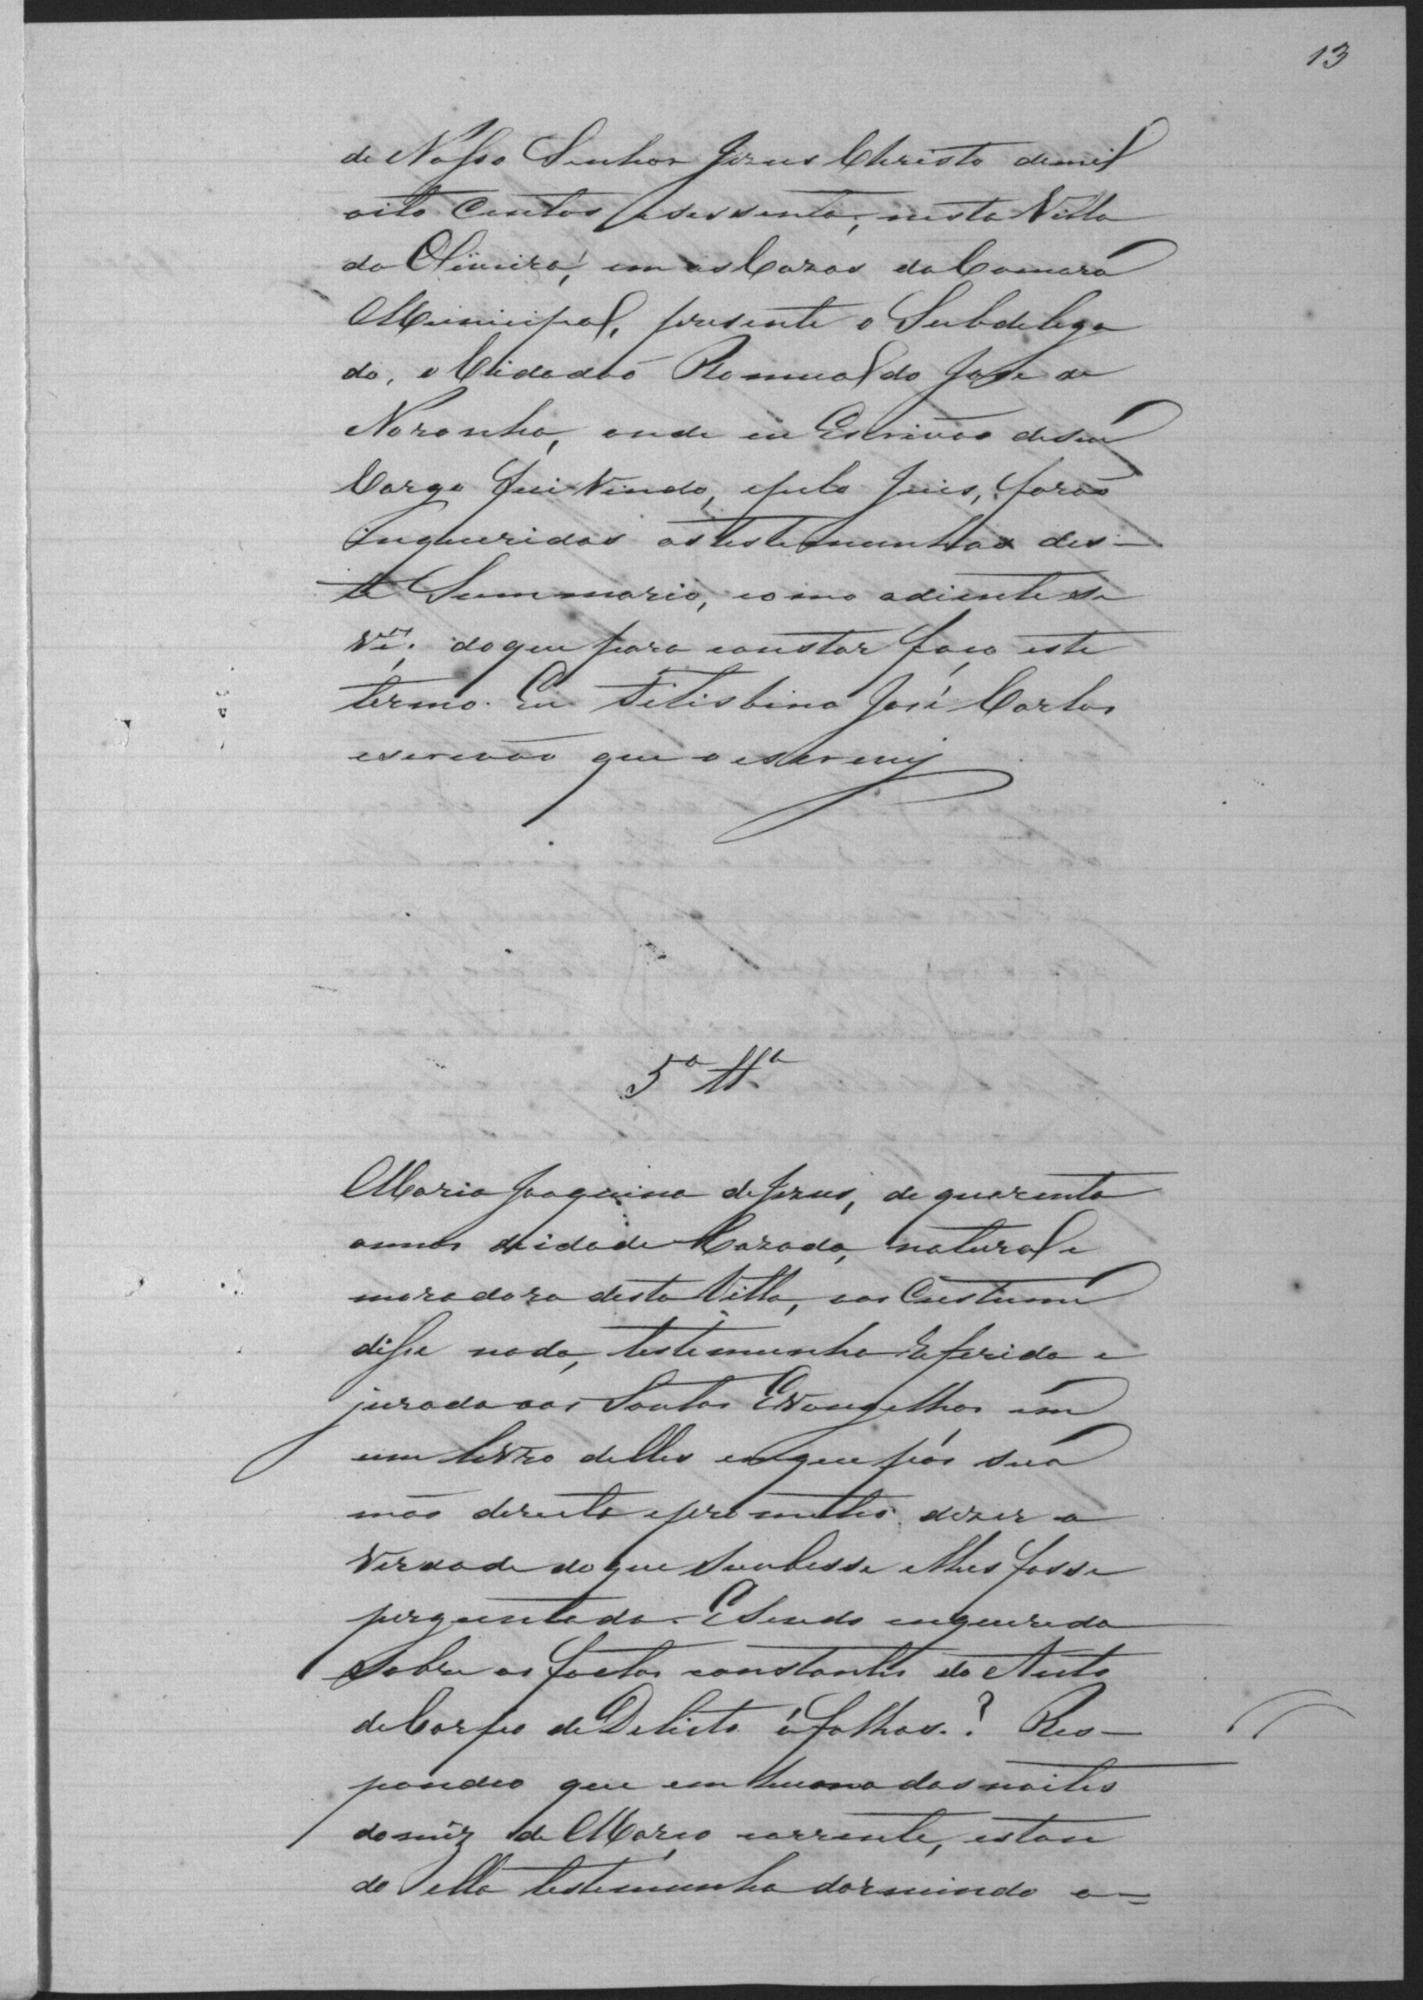 13
de Nosso Senhor Jezus Christo demil
oito centos e sessenta, nesta Villa
da Oliveira, em as Cazas da Camara
Municipal, presente o Subdelega
do, o Cidadão Romualdo José de
Noronha, onde eu Escrivão deseu
Cargo fui vindo, epelo Juis, forão
inqueridas astestemunhas des-
te Summario, como adiente se
vê; doque para constar faço este
termo. Eu Felisbino José Carlos
escrevão que o escrevij
5ª Ttª
Maria Joaquina deJezus, de quarenta
annos de idade Cazada, natural e
moradora desta Villa, aos Custumes
disse nada, testemunha referida e
jurada aos Santos Evangelhos em
um livro delles emque pôs sua
mão dereita eprometeo dizer a
verdade doque soubesse elhes fosse
perguntado. Esendo enquerida
sobre os factos constantes do Auto
deCorpo deDelicto á folhas.? Res-
pondeo que em huma das noites
domêz de Março corrente, estan
do ella testemunha dormindo a=